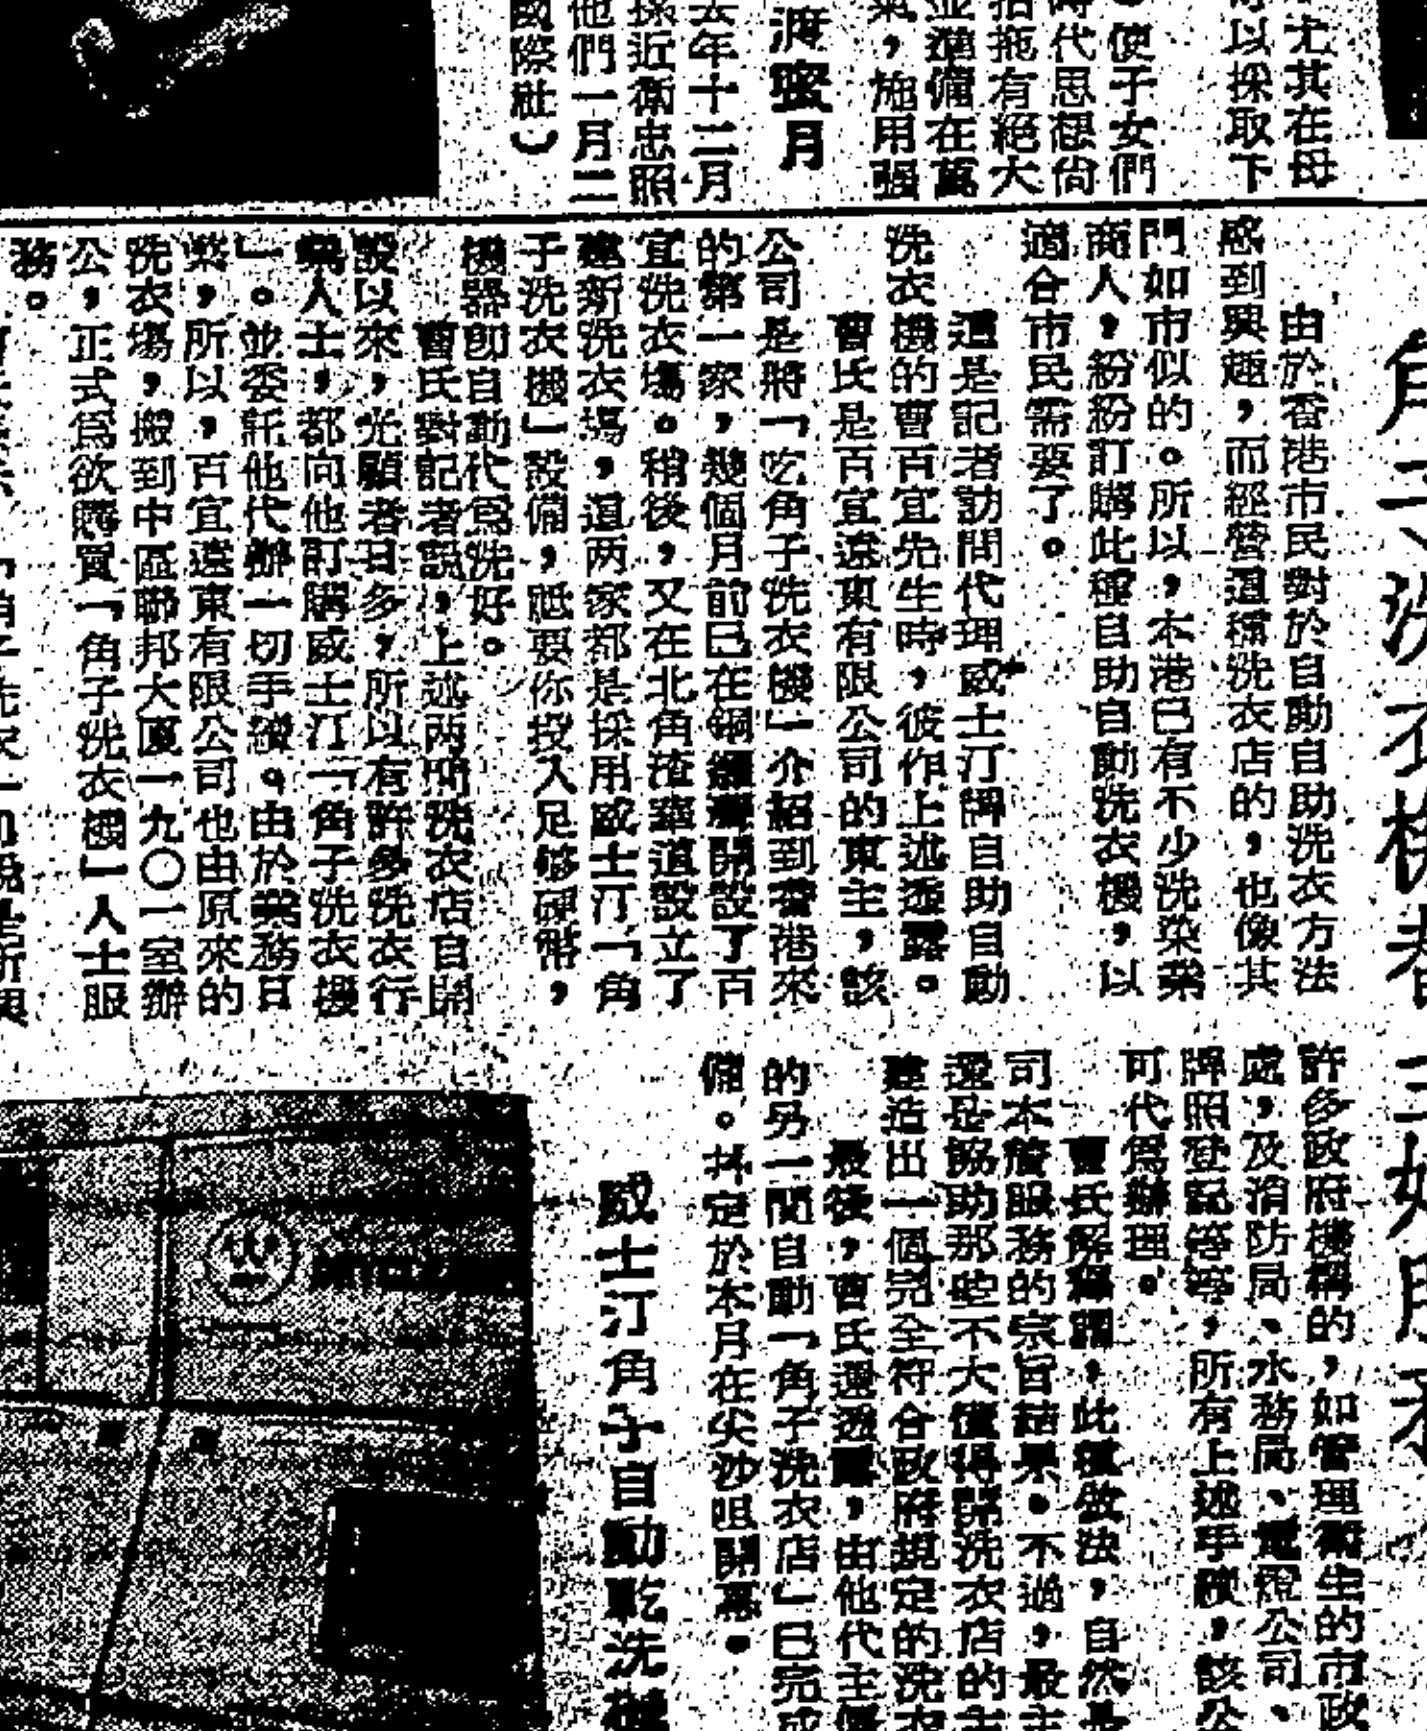 尤其在母
以採取下
使子女們
時代思想尙
拖有絕大
並準備在萬
，施用强
渡蜜月
去年十二月
孫近衛忠照
他們一月二
國際社）
由於香港市民對於自動自助洗衣方法
感到興趣，而經營這種洗衣店的，也像其
門如市似的。所以，本港已有不少洗染業
商人，紛紛訂購此種自助自動洗衣機，以
適合市民需要了。
這是記者訪問代理威士汀牌自助自動
洗衣機的曹百宜先生時，彼作上述透露。
曹氏是百宜遠東有限公司的東主，該
公司是將「吃角子洗衣機」介紹到香港來
的第一家，幾個月前已在銅鑼灣開設了百
宜洗衣塲。稍後，又在北角渣華道設立了
建新洗衣塲，這两家都是採用威士汀「角
子洗衣機」設備，祗要你投入足够硬幣，
機器卽自動代爲洗好。
曹氏對記者說，上述两間洗衣店自開
設以來，光顧者日多，所以有許多洗衣行
業人士，都向他訂購威士汀「角子洗衣機
」。並委託他代辦一切手續。由於業務日
繁，所以，百宜遠東有限公司也由原來的
洗衣塲，搬到中區聯邦大厦一九〇一室辦
公，正式爲欲購買「角子洗衣機」人士服
務。
角子洗衣機者
許多政府機構的，如管理衞生的市政
處，及消防局、水務局、電燈公司、
牌照登記等等，所有上述手續，該公
可代爲辦理。
曹氏解釋謂，此種做法，自然是
司本詹服務的宗旨結果。不過，最主
還是協助那些不大懂得開洗衣店的主
建造出一個完全符合政府規定的洗衣
最後，曹氏還透露，由他代主
的另一間自動「角子洗衣店」已完成
備。并定於本月在尖沙咀開幕。
威士汀角子自動乾洗機